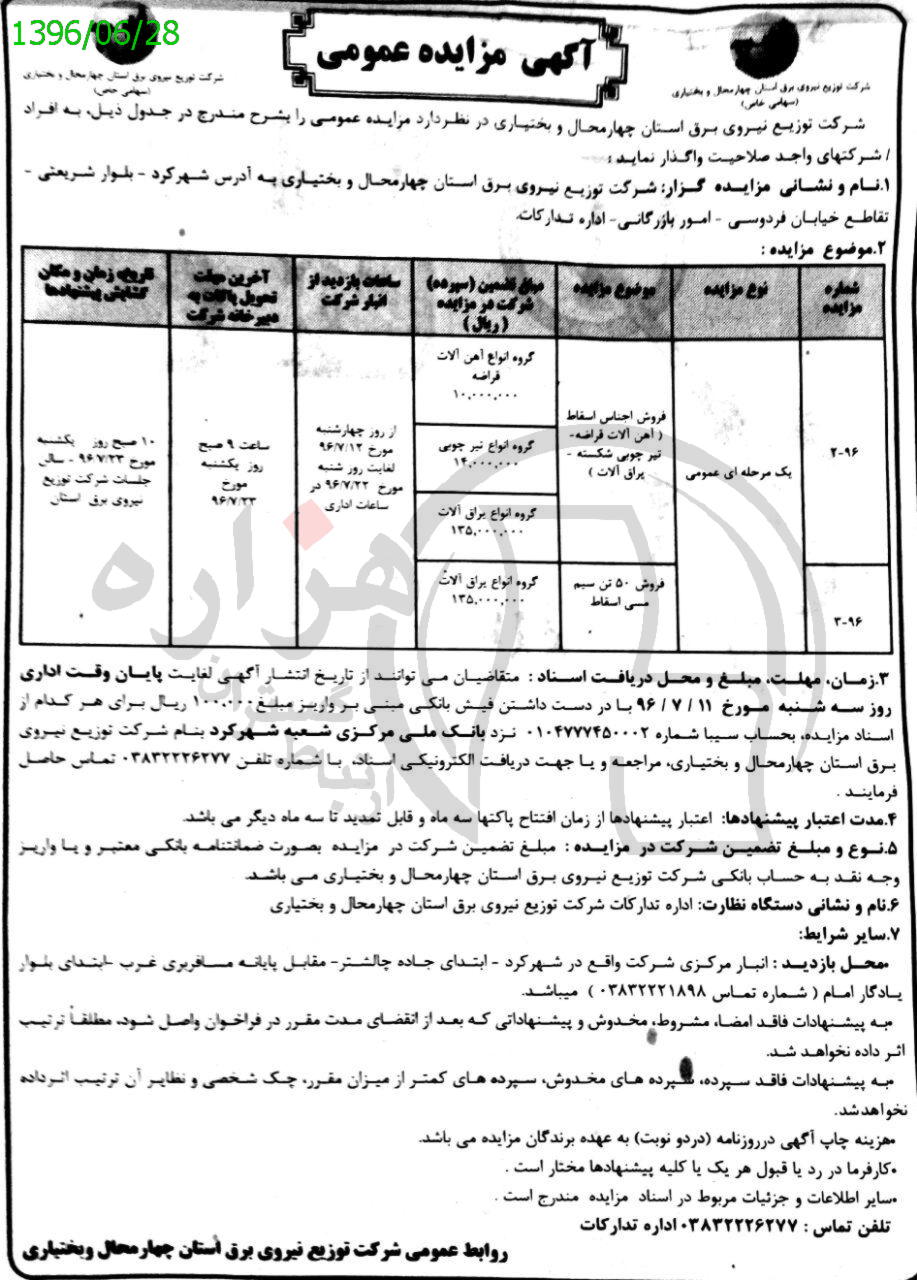 1396/06/28
آگهی مزایده عمومی
شرکت توزیع نیروی برق استان چهارمحال و بختیاری
(سهامی خاص)
شرکت توزیع نیروی برق استان چهارمحال و بختیاری
(سهامی خاص)
شرکت توزیع نیروی برق استان چهارمحال و بختیاری در نظردارد مزایده عمومی را بشرح مندرج در جدول ذیل، به افراد
/ شرکتهای واجد صلاحیت واگذار نماید :
۱.نام و نشانی مزایده گزار: شرکت توزیع نیروی برق استان چهارمحال و بختیاری به آدرس شهرکرد - بلوار شریعتی -
تقاطع خیابان فردوسی - امور بازرگانی- اداره تدارکات.
۲.موضوع مزایده :
شماره مزایده
نوع مزایده
موضوع مزایده
مبلغ تضمین (سپرده) شرکت در مزایده (ریال)
ساعات بازدید از انبار شرکت
آخرین مهلت تحویل پاکات به دبیرخانه شرکت
تاریخ، زمان و مکان گشایش پیشنهادها
۲-۹۶
یک مرحله ای عمومی
فروش اجناس اسقاط
( آهن آلات قراضه-
تیر چوبی شکسته -
یراق آلات )
گروه انواع آهن آلات
قراضه
۱۰,۰۰۰,۰۰۰
گروه انواع تیر چوبی
۱۴,۰۰۰,۰۰۰
گروه انواع یراق آلات
۱۳۵,۰۰۰,۰۰۰
از روز چهارشنبه
مورخ ۹۶/۷/۱۲
لغایت روز شنبه
مورخ ۹۶/۷/۲۲ در
ساعات اداری
ساعت ۹ صبح
روز یکشنبه
مورخ
۹۶/۷/۲۳
۱۰ صبح روز یکشنبه
مورخ ۹۶/۷/۲۳ - سالن
جلسات شرکت توزیع
نیروی برق استان
۳-۹۶
فروش ۵۰ تن سیم
مسی اسقاط
گروه انواع یراق آلات
۱۳۵,۰۰۰,۰۰۰
۳.زمان، مهلت، مبلغ و محل دریافت اسناد : متقاضیان می توانند از تاریخ انتشار آگهی لغایت پایان وقت اداری
روز سه شنبه مورخ ۱۱ / ۷ / ۹۶ با در دست داشتن فیش بانکی مبنی بر واریز مبلغ ۱۰۰.۰۰۰ ریال برای هر کدام از
اسناد مزایده، بحساب سیبا شماره ۰۱۰۴۷۷۷۴۵۰۰۰۲ نزد بانک ملی مرکزی شعبه شهرکرد بنام شرکت توزیع نیروی
برق استان چهارمحال و بختیاری، مراجعه و یا جهت دریافت الکترونیکی اسناد، با شماره تلفن ۰۳۸۳۲۲۲۶۲۷۷ تماس حاصل
فرمایند .
۴.مدت اعتبار پیشنهادها: اعتبار پیشنهادها از زمان افتتاح پاکتها سه ماه و قابل تمدید تا سه ماه دیگر می باشد.
۵.نوع و مبلغ تضمین شرکت در مزایده : مبلغ تضمین شرکت در مزایده بصورت ضمانتنامه بانکی معتبر و یا واریز
وجه نقد به حساب بانکی شرکت توزیع نیروی برق استان چهارمحال و بختیاری می باشد.
۶.نام و نشانی دستگاه نظارت: اداره تدارکات شرکت توزیع نیروی برق استان چهارمحال و بختیاری
۷.سایر شرایط:
•محل بازدید : انبار مرکزی شرکت واقع در شهرکرد - ابتدای جاده چالشتر- مقابل پایانه مسافربری غرب -ابتدای بلوار
یادگار امام ( شماره تماس ۰۳۸۳۲۲۲۱۸۹۸ ) میباشد.
•به پیشنهادات فاقد امضا، مشروط، مخدوش و پیشنهاداتی که بعد از انقضای مدت مقرر در فراخوان واصل شود، مطلقاً ترتیب
اثر داده نخواهد شد.
•به پیشنهادات فاقد سپرده، سپرده های مخدوش، سپرده های کمتر از میزان مقرر، چک شخصی و نظایر آن ترتیب اثرداده
نخواهدشد.
•هزینه چاپ آگهی درروزنامه (دردو نوبت) به عهده برندگان مزایده می باشد.
•کارفرما در رد یا قبول هر یک یا کلیه پیشنهادها مختار است .
•سایر اطلاعات و جزئیات مربوط در اسناد مزایده مندرج است .
تلفن تماس : ۰۳۸۳۲۲۲۶۲۷۷ اداره تدارکات
روابط عمومی شرکت توزیع نیروی برق استان چهارمحال وبختیاری
هزاره